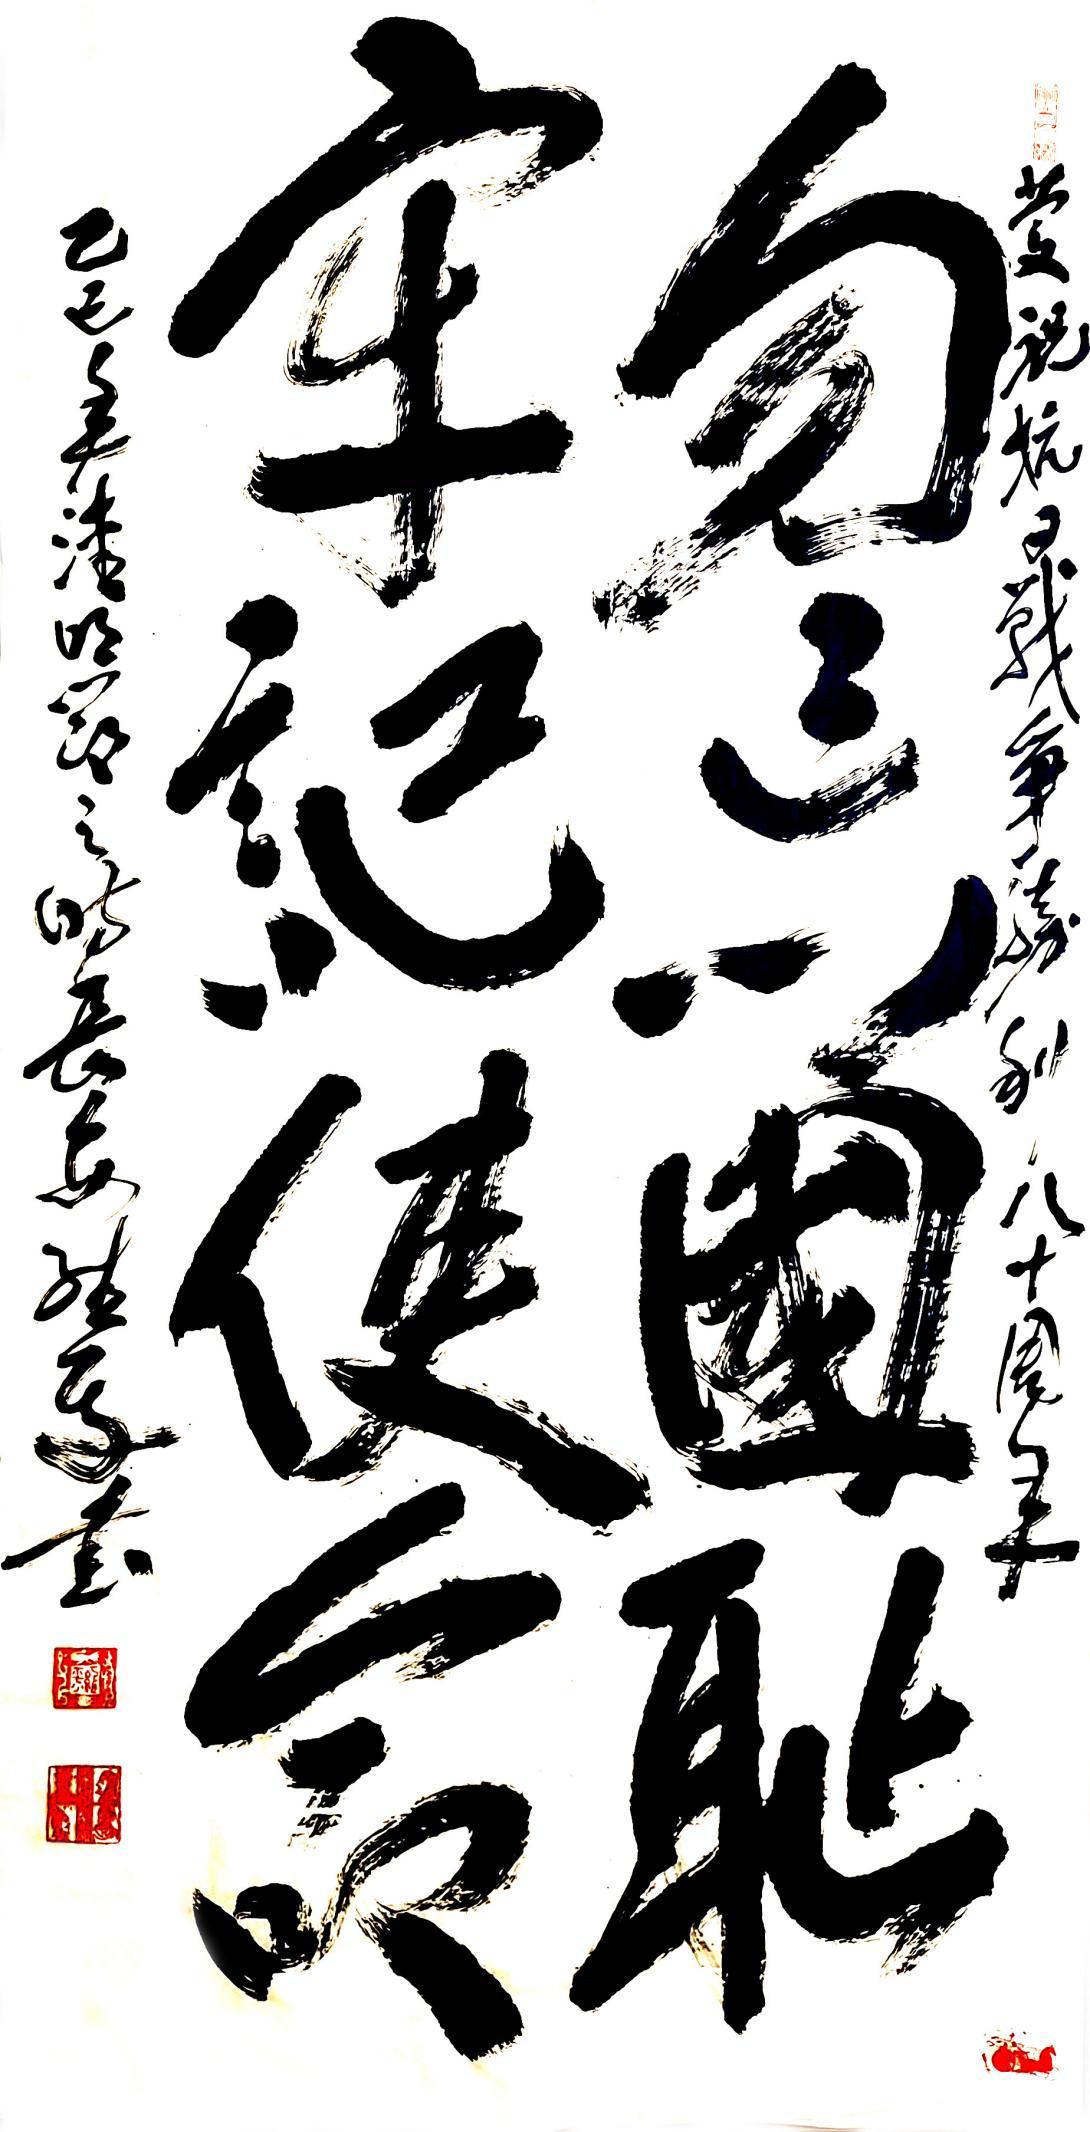 慶祝抗日戰爭勝利八十周年
勿忘國耻
牢記使命
乙巳年清明節之時長安書